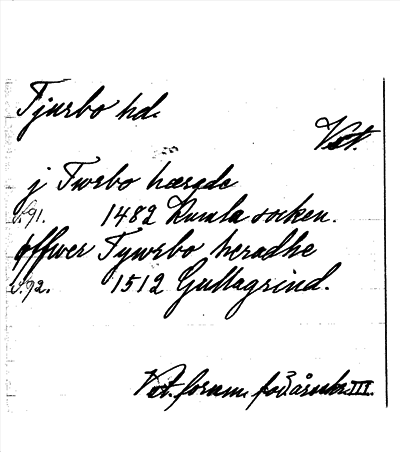 Tjurbo hd.
Vät.
j Twrbo hærade
S.91. 1482 Kumla socken.
offwer Tywrbo heradhe
S.92. 1512 Gullagrind.
Vät. fornm. för. årsskr. III.